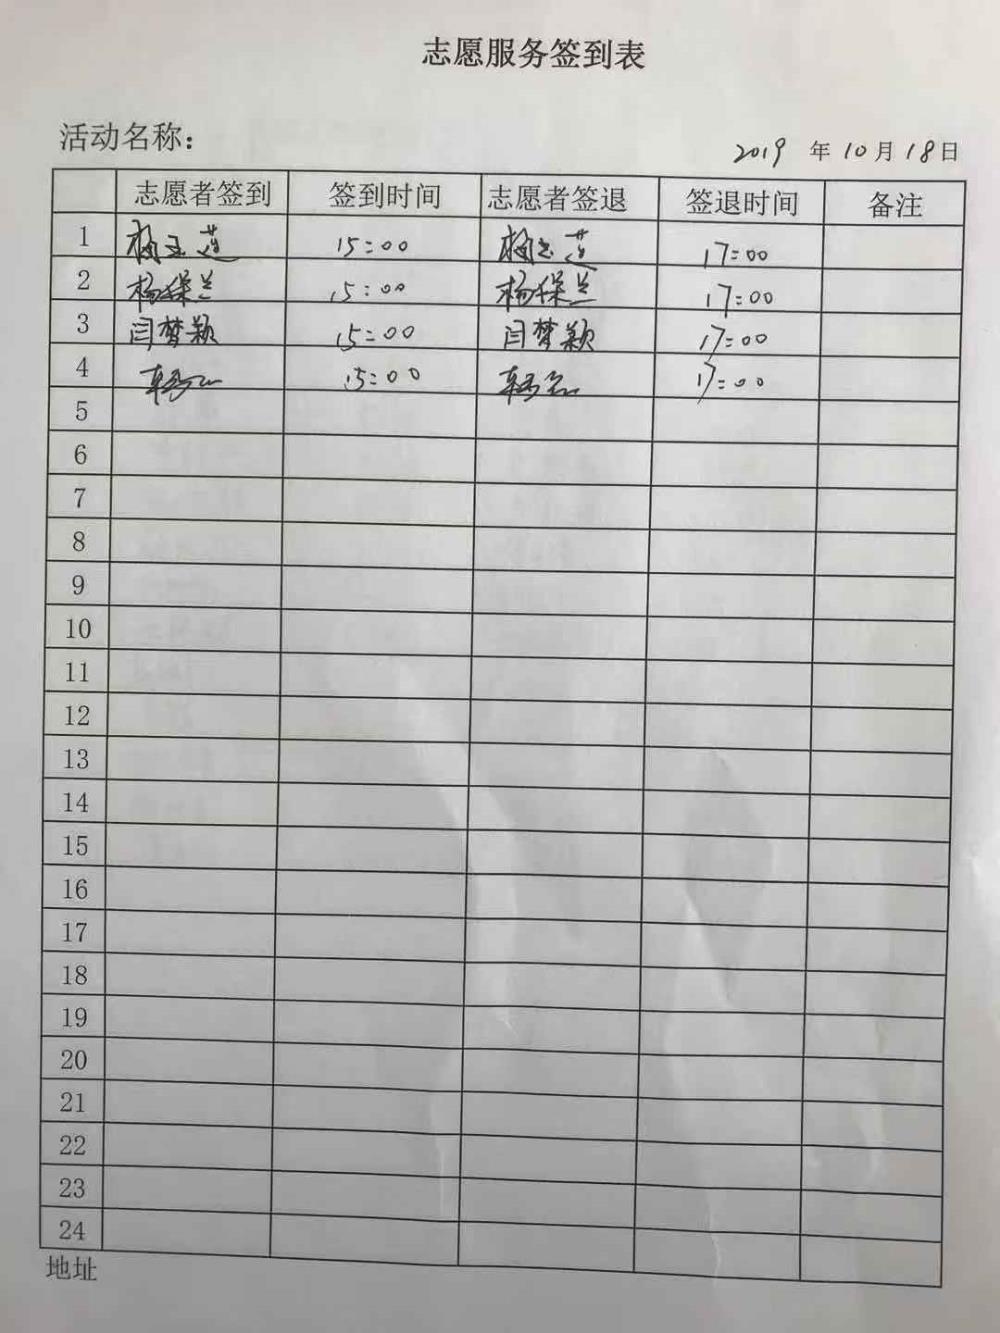 志愿服务签到表
活动名称：
2019 年 10 月 18 日
志愿者签到 签到时间 志愿者签退 签退时间 备注
1 15:00 17:00
2 杨保兰 15:00 杨保兰 17:00
3 闫梦颖 15:00 闫梦颖 17:00
4 15:00 17:00
5
6
7
8
9
10
11
12
13
14
15
16
17
18
19
20
21
22
23
24
地址